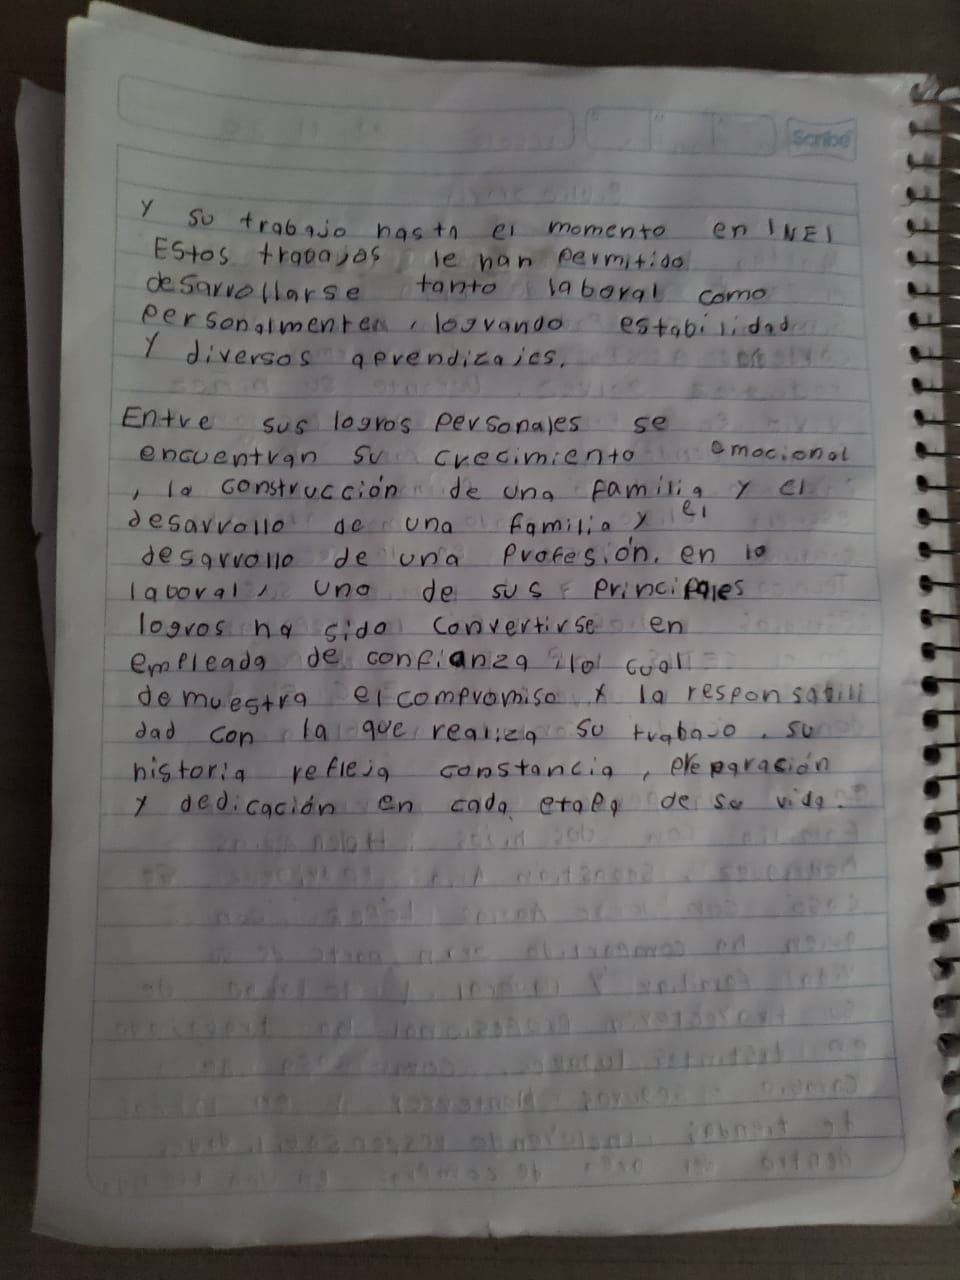 Scribe
Y su trabajo hasta el momento en INEI
Estos trabajos le han permitido
desarrollarse tanto laboral como
personalmente, logrando estabilidad
Y diversos aprendizajes.
Entre sus logros personales se
encuentran su crecimiento emocional
, la construcción de una familia y el
desarrollo de una familia y el
desarrollo de una profesión. en lo
laboral, uno de sus principales
logros ha sido convertirse en
empleada de confianza, lo cual
demuestra el compromiso y la responsabili
dad con la que realiza su trabajo. su
historia refleja constancia, preparación
y dedicación en cada etapa de su vida.